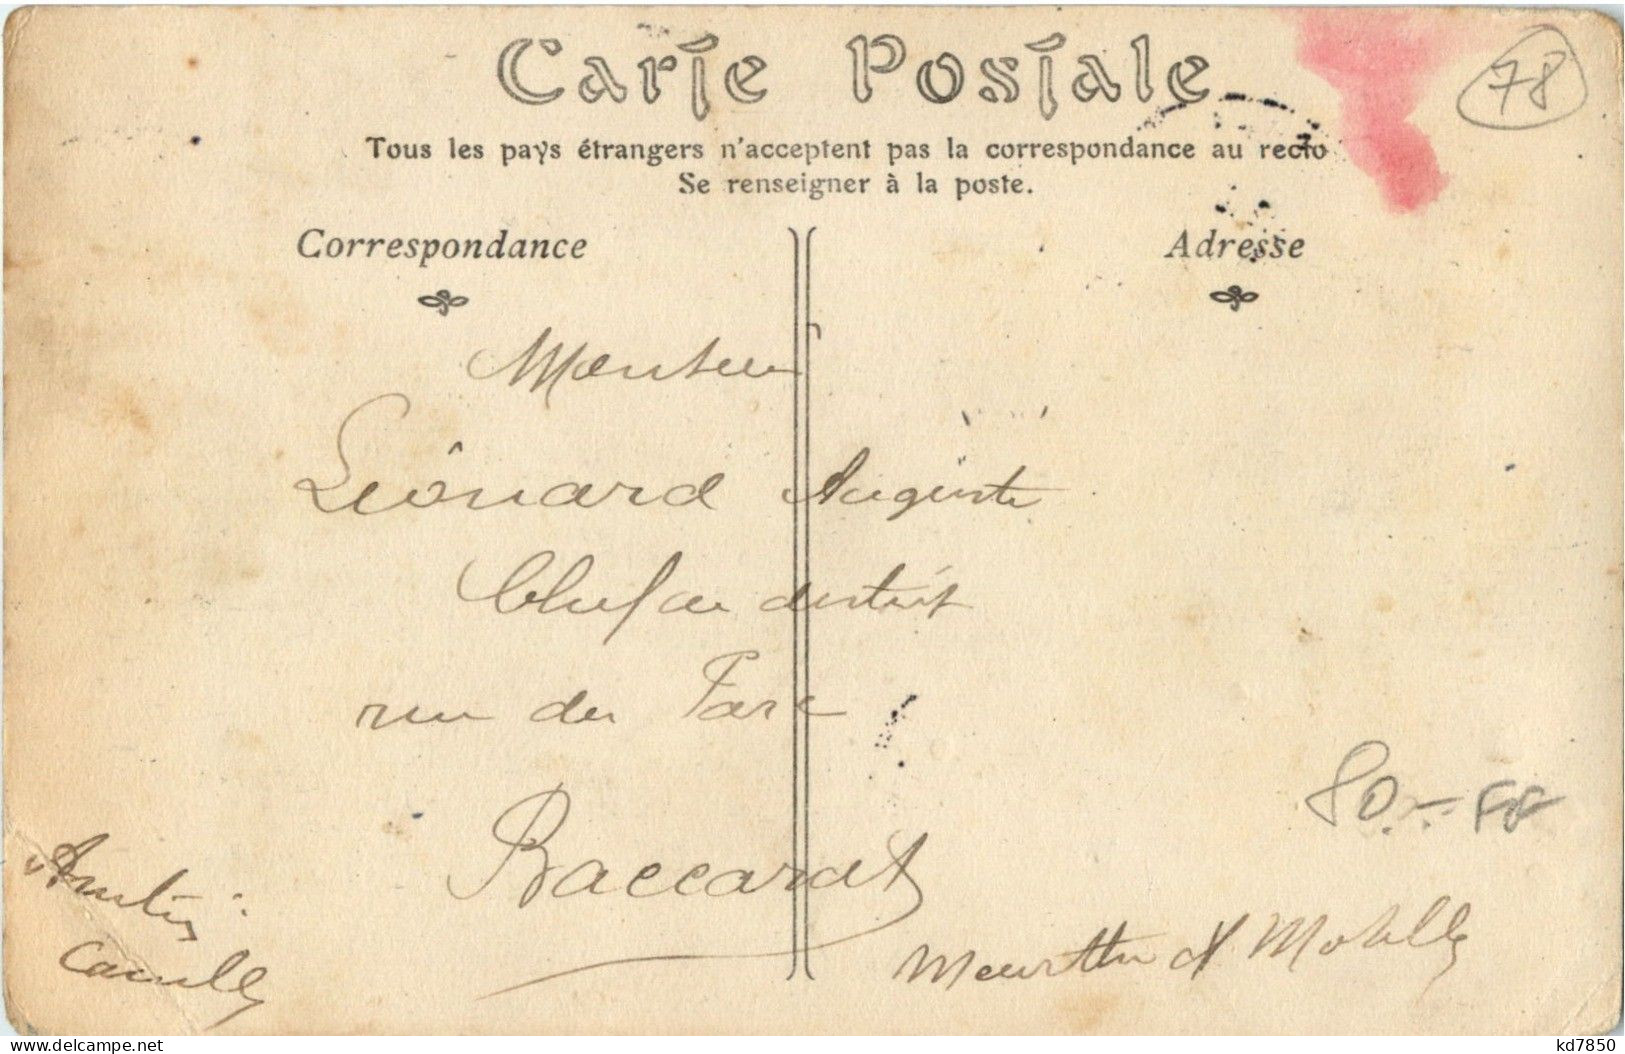 Carte Postale
78
Tous les pays étrangers n'acceptent pas la correspondance au recto
Se renseigner à la poste.
Correspondance
Adresse
Monsieur
Léonard Auguste
Chef de district
rue du Parc
Baccarat
Meurthe et Moselle
Amitiés
Camille
80.-
kd7850